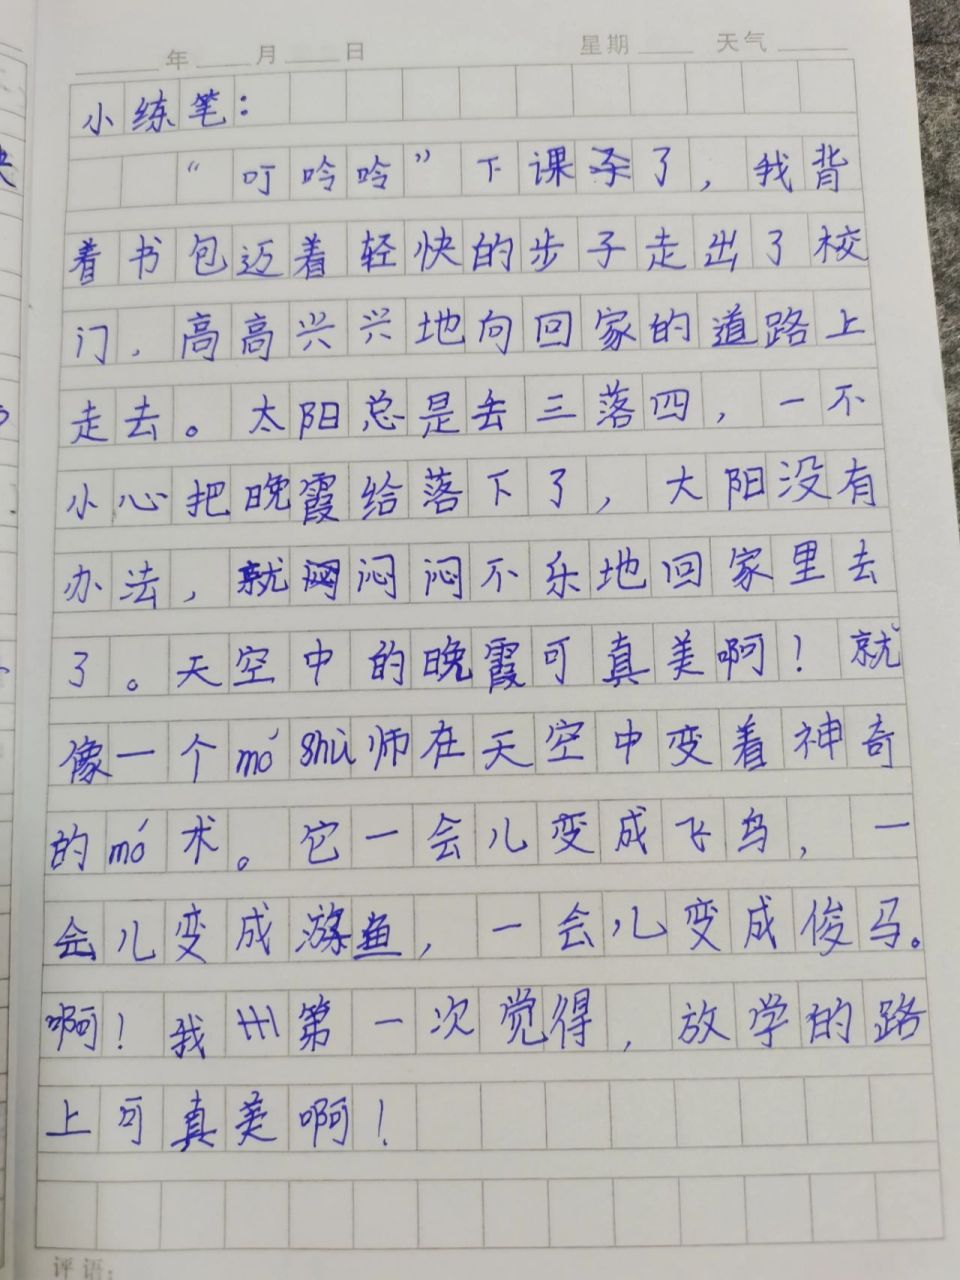 年 月 日 星期 天气
小练笔：
“叮呤呤”下课了，我背
着书包迈着轻快的步子走出了校
门，高高兴兴地向回家的道路上
走去。太阳总是丢三落四，一不
小心把晚霞给落下了，大阳没有
办法，就闷闷不乐地回家里去
了。天空中的晚霞可真美啊！就
像一个mó shù师在天空中变着神奇
的mó术。它一会儿变成飞鸟，一
会儿变成游鱼，一会儿变成俊马。
啊！我第一次觉得，放学的路
上可真美啊！
评语：